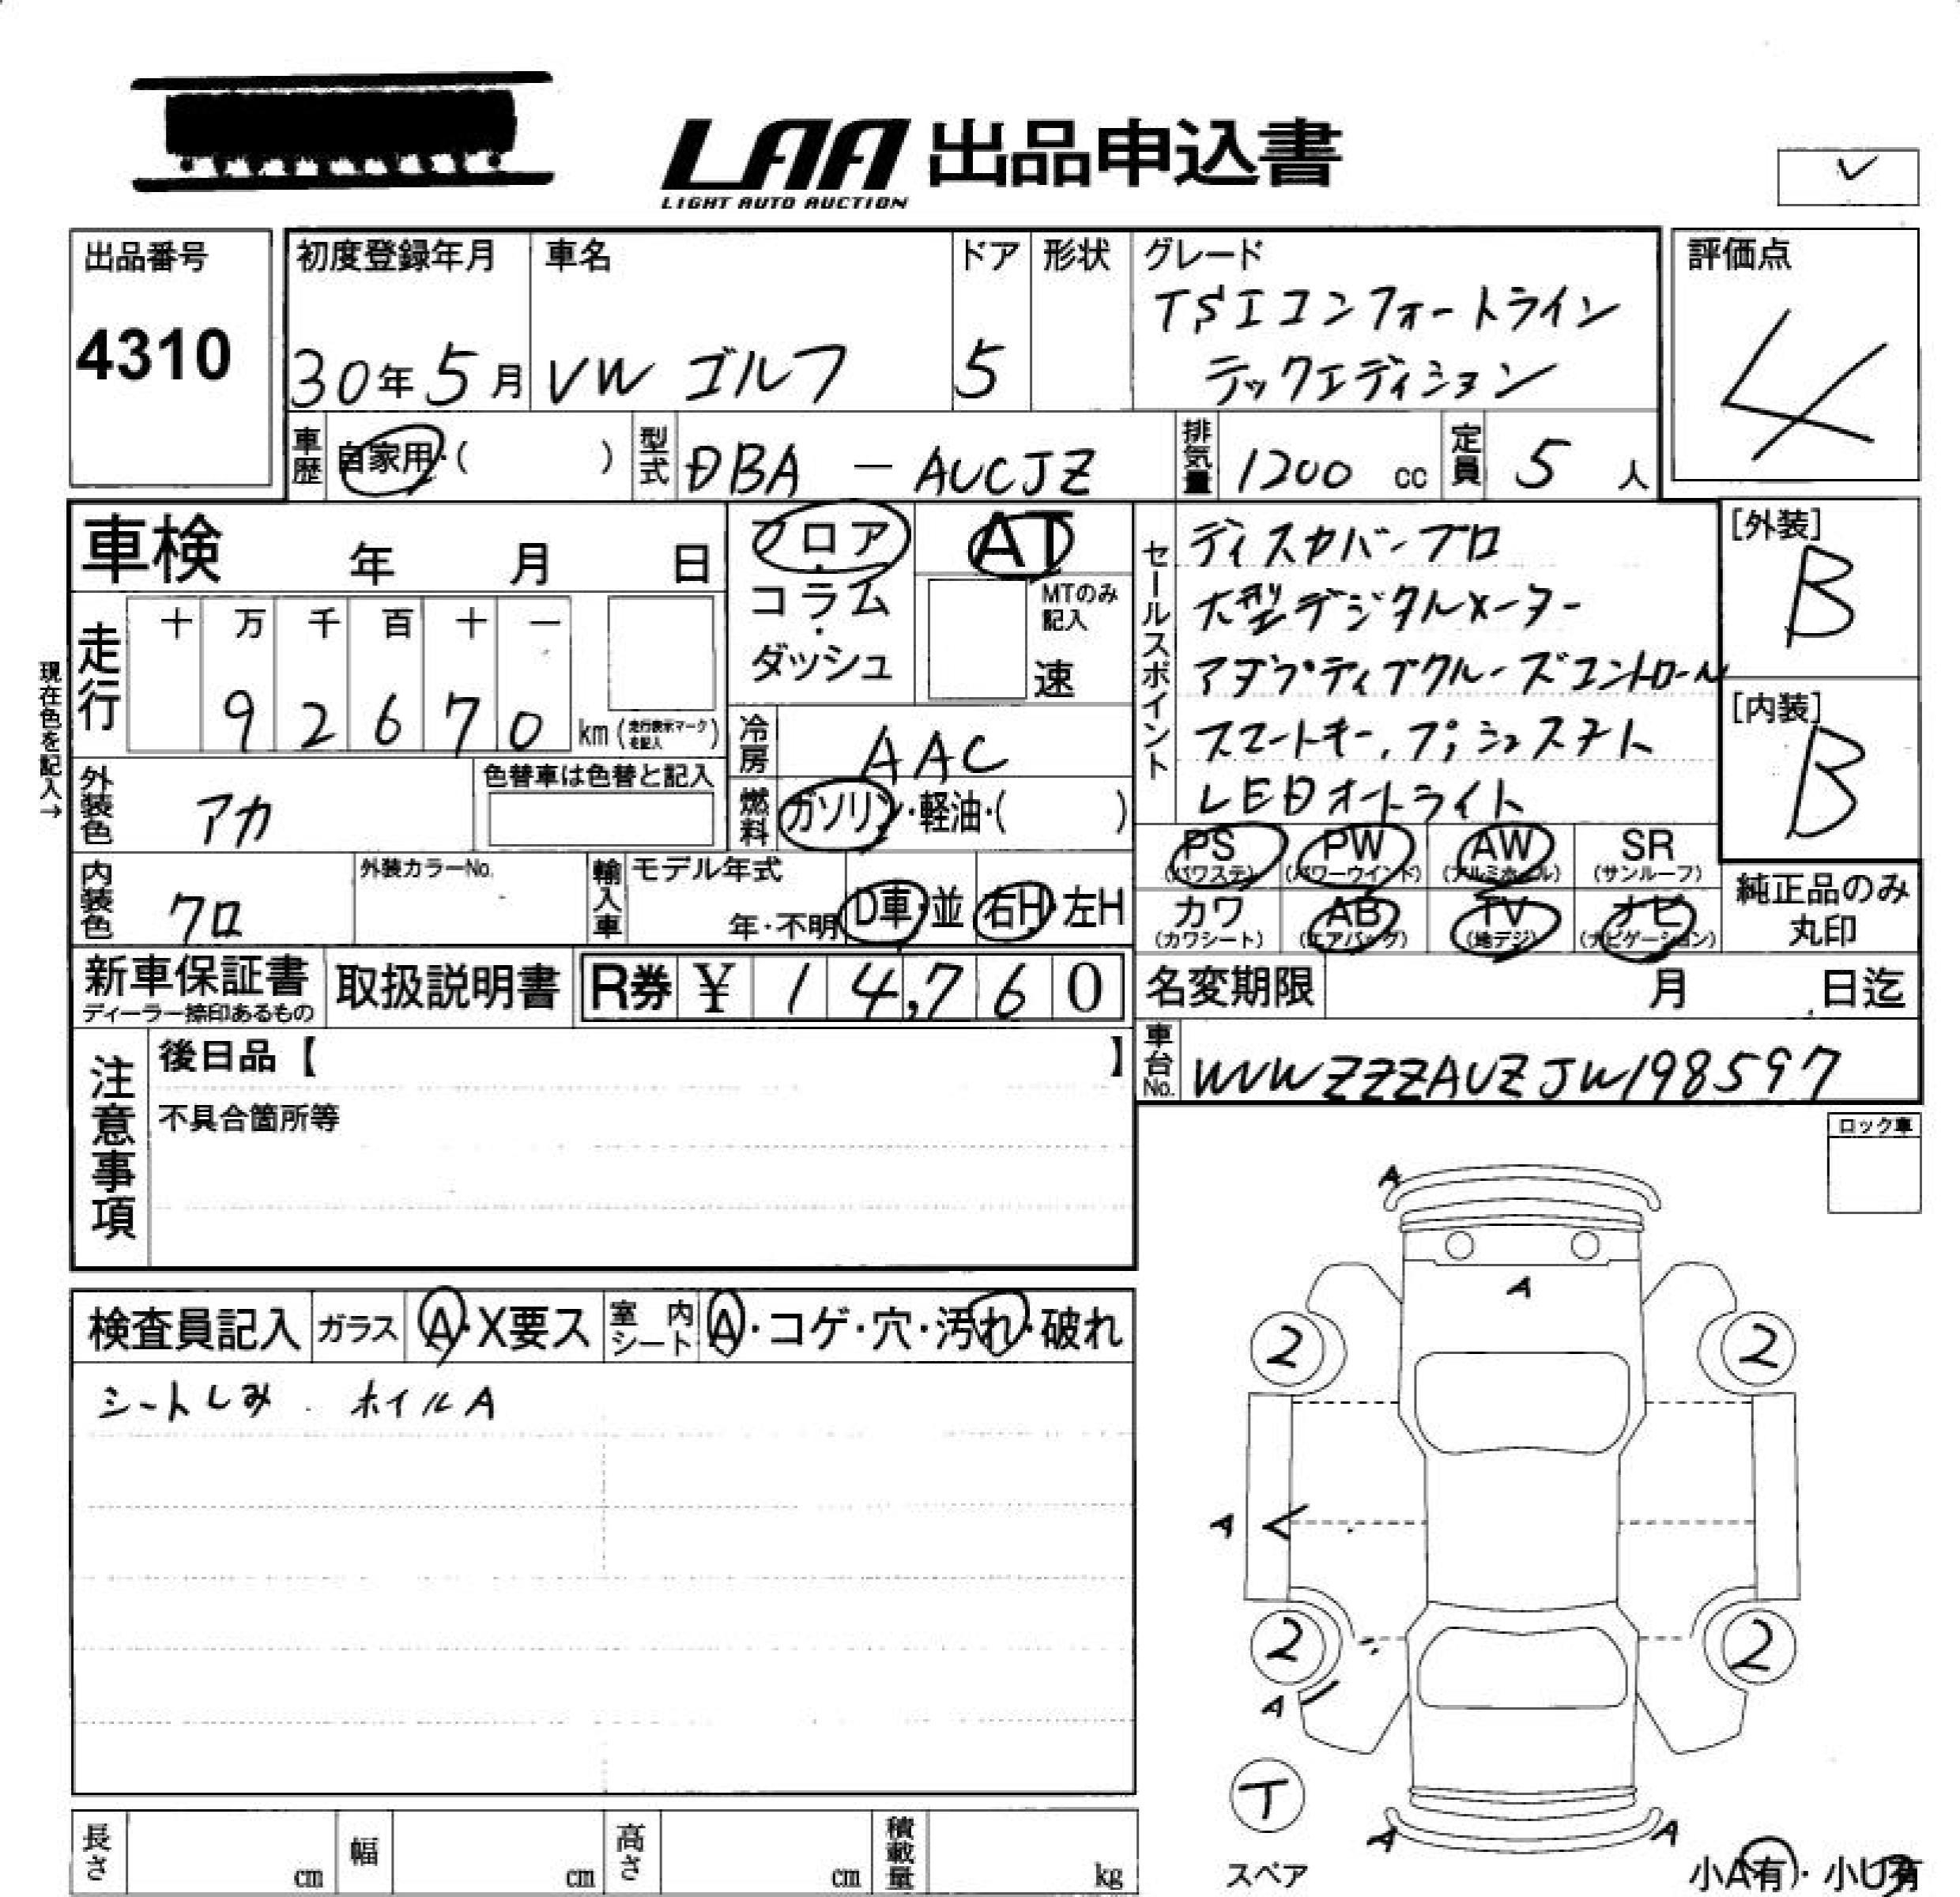 LAA 出品申込書
LIGHT AUTO AUCTION
✓
出品番号
4310
初度登録年月 車名 ドア 形状 グレード
30年5月 VW ゴルフ 5 TSIコンフォートライン
テックエディション
評価点
4
車歴 自家用・( ) 型式 DBA - AUCJZ 排気量 1200 cc 定員 5 人
車検 年 月 日
フロア・コラム・ダッシュ
AT
MTのみ記入
速
セールスポイント
ディスカバープロ
大型デジタルメーター
アダプティブクルーズコントロール
スマートキー,プッシュスタート
LEDオートライト
[外装]
B
[内装]
B
現在色を記入→
走行 十 万 千 百 十 一
9 2 6 7 0 km (走行表示マークを記入)
冷房 AAC
燃料 ガソリン・軽油・( )
外装色 アカ
色替車は色替と記入
内装色 クロ
外装カラーNo.
輸入車 モデル年式
年・不明 D車・並 右H・左H
PS (パワステ) PW (パワーウインド) AW (アルミホイール) SR (サンルーフ)
カワ (カワシート) AB (エアバッグ) TV (地デジ) ナビ (ナビゲーション)
純正品のみ
丸印
新車保証書
ディーラー捺印あるもの
取扱説明書
R券 ¥ 14,760
名変期限 月 日迄
車台No. WVWZZZAUZJW198597
注意事項
後日品【 】
不具合箇所等
ロック車
検査員記入 ガラス A・X要ス 室内シート A・コゲ・穴・汚れ・破れ
シートしみ . ホイルA
A
A
2 2
A
2 2
A
T
スペア
A A
小A有・小U有
長さ cm 幅 cm 高さ cm 積載量 kg